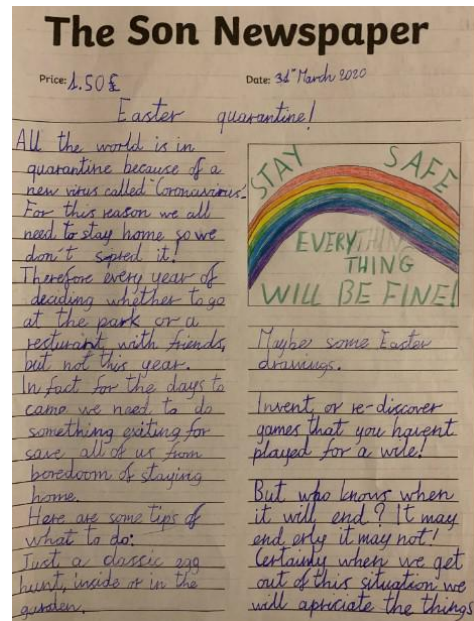 The Son Newspaper
Price: 1.50£
Date: 31st March 2020
Easter quarantine!
All the world is in
quarantine because of a
new virus called "Coronavirus".
For this reason we all
need to stay home so we
don't spred it!
Therefore every year of
deciding whether to go
at the park or a
resturant with friends,
but not this year.
In fact for the days to
came we need to do
something exiting for
save all of us from
boredoom of staying
home.
Here are some tips of
what to do:
Just a classic egg
hunt, inside or in the
garden.
STAY SAFE
EVERYTHIN
THING
WILL BE FINE!
Maybe some Easter
drawings.
Invent or re-discover
games that you havent
played for a wile!
But who knows when
it will end? It may
end erly it may not!
Certainly when we get
out of this situation we
will apriciate the things